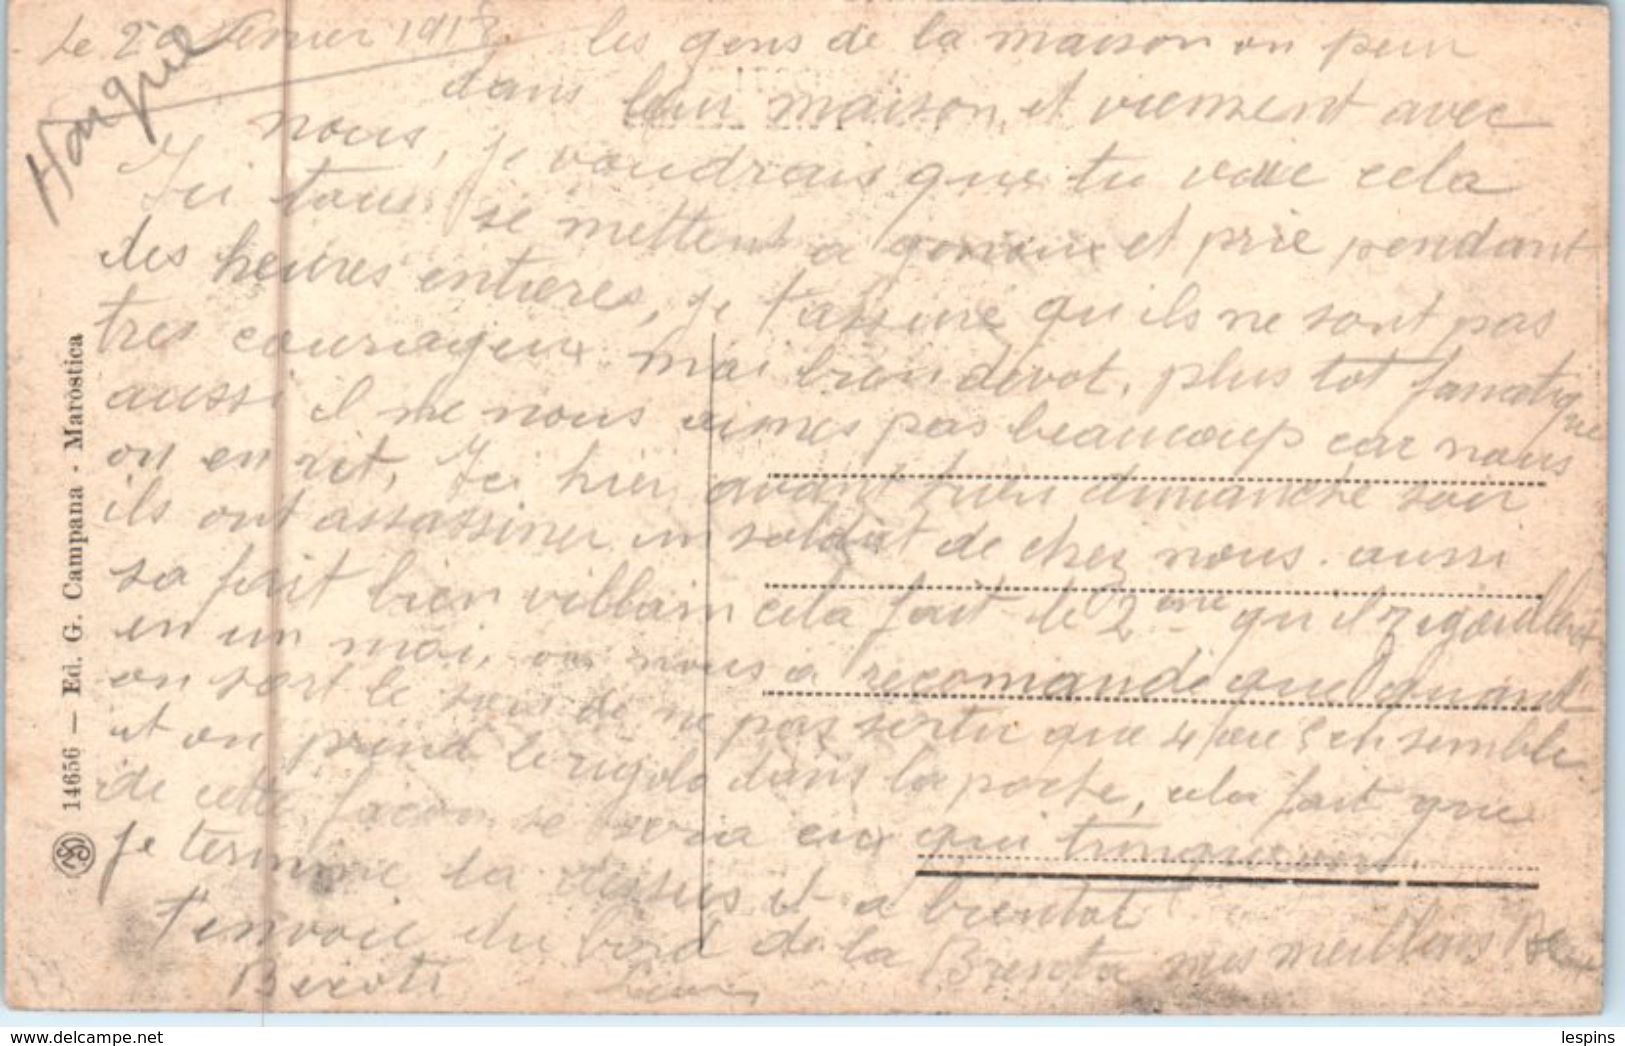 Le 20 Février 1918. les gens de la maison on peur
Harquie
dans leur maison et viennent avec
nous, je voudrais que tu voie cela
Ici tous se mettent a genoux et prie pendant
des heures entieres, je t'assure qu'ils ne sont pas
tres courageux mai bien devot, plus tot fanatique
aussi il ne nous aimes pas beaucoup car nous
on en rit, Ici hier avant hier dimanche soir
ils ont assassiner un soldat de chez nous. aussi
sa fait bien villain cela fait le 2eme qu'il
en un moi, on nous a recomandé que quand
on sort le soir de ne pas sortir que 4 ou 5 ensemble
et on prend le rigolo dans la poche, cela fait que
de cette façon se sera eux qui trinquerons.
Je termine la dessus et a bientot
t'envoie du bord de la Brenta mes meilleurs
14656 — Ed. G. Campana - Marostica
lespins
www.delcampe.net